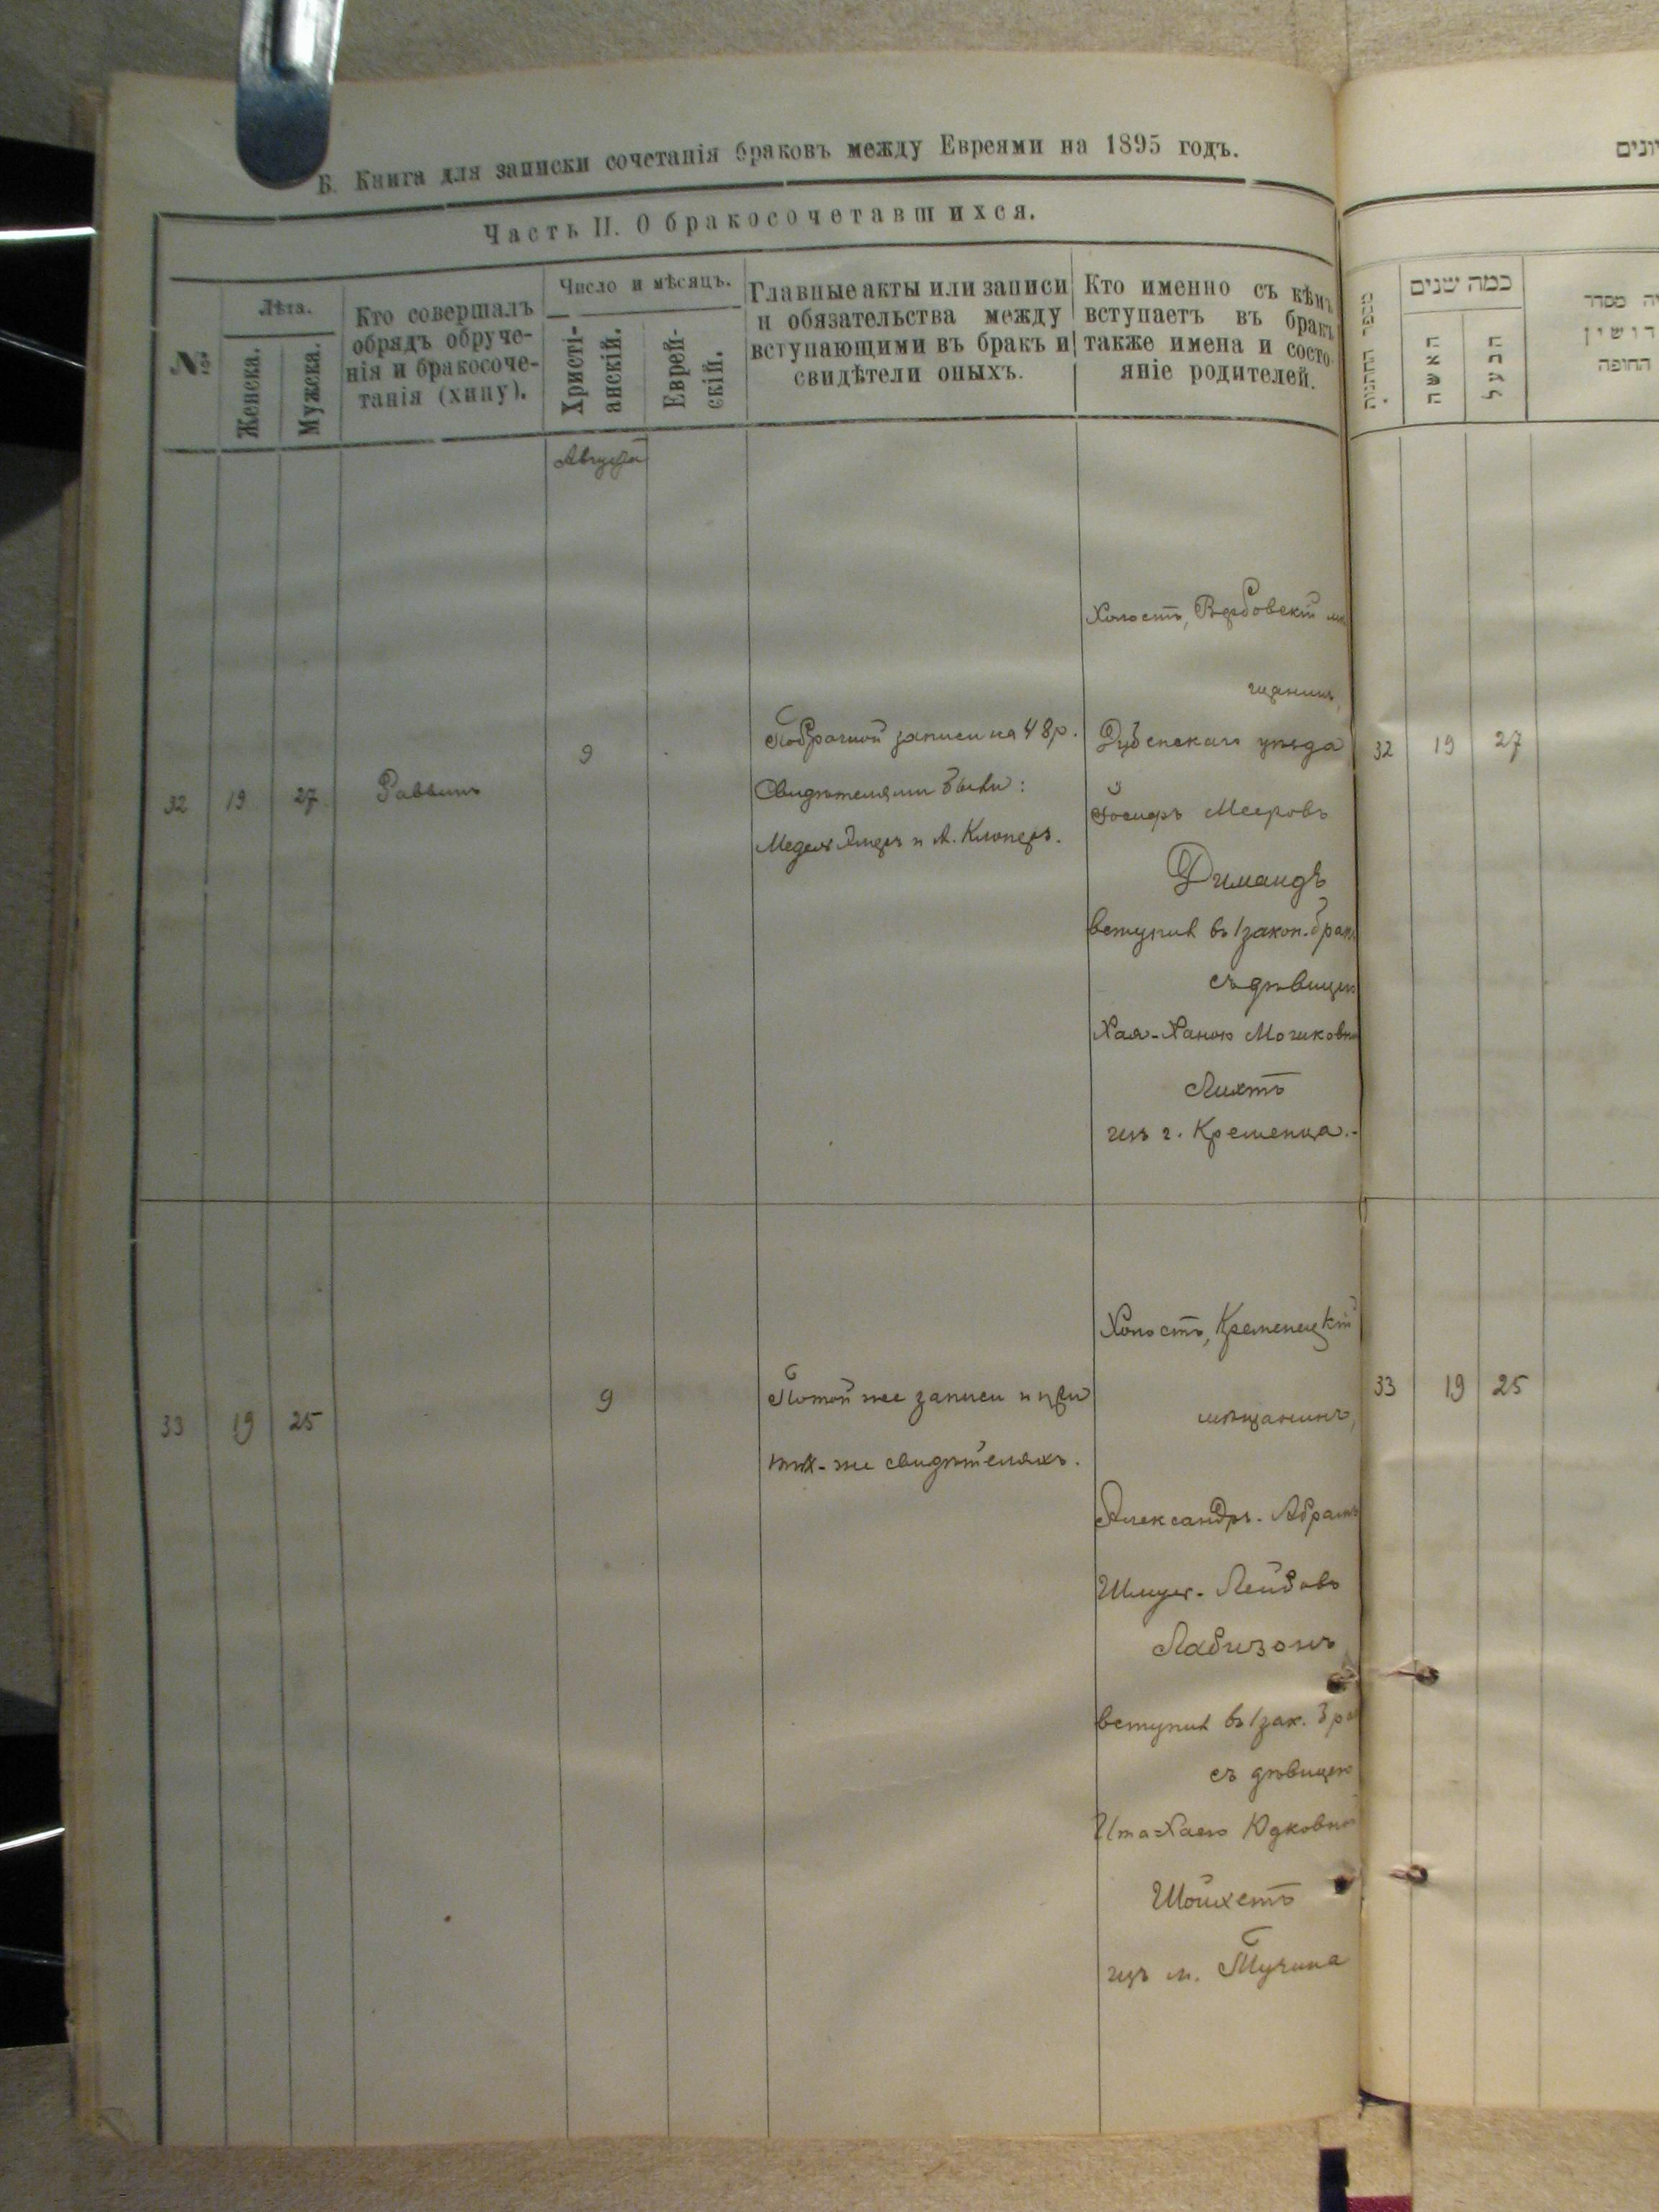 Б. Книга для записки сочетанія браковъ между Евреями на 1895 годъ.
Часть II. О бракосочетавшихся.
№
Лѣта.
Женска.
Мужеска.
Кто совершалъ
обрядъ обруче-
нія и бракосоче-
танія (хипу).
Число и мѣсяцъ.
Христі-
анскій.
Еврей-
скій.
Главные акты или записи
и обязательства между
вступающими въ бракъ и
свидѣтели оныхъ.
Кто именно съ кѣмъ
вступаетъ въ бракъ
также имена и состо-
яніе родителей.
Августа
32
19
27
Раввинъ
9
По брачной записи на 48 р.
Свидѣтелями были:
и А. Клоперъ.
Холостъ, Вербовскій мѣ
щанинъ,
Дубенскаго уѣзда
Іосифъ Мееровъ
Димандъ
вступил въ 1 закон. бракъ
съ дѣвицею
Хая-Ханою
Лихтъ
изъ г. Кременца.-
33
19
25
9
По той же записи и при
тѣх-же свидѣтеляхъ.
Холостъ, Кременецкій
мѣщанинъ,
Александръ-Абрамъ
Шмуел-Лейбовъ
Лабизонъ
вступил въ 1 зак. бра
съ дѣвицею
Ита-Хаею Юдковно
Шойхетъ
изъ м. Тучина
כמה שנים
מספר החתנות
האשה
הבעל
יה מסדר
דושין
החופה
32
19
27
33
19
25